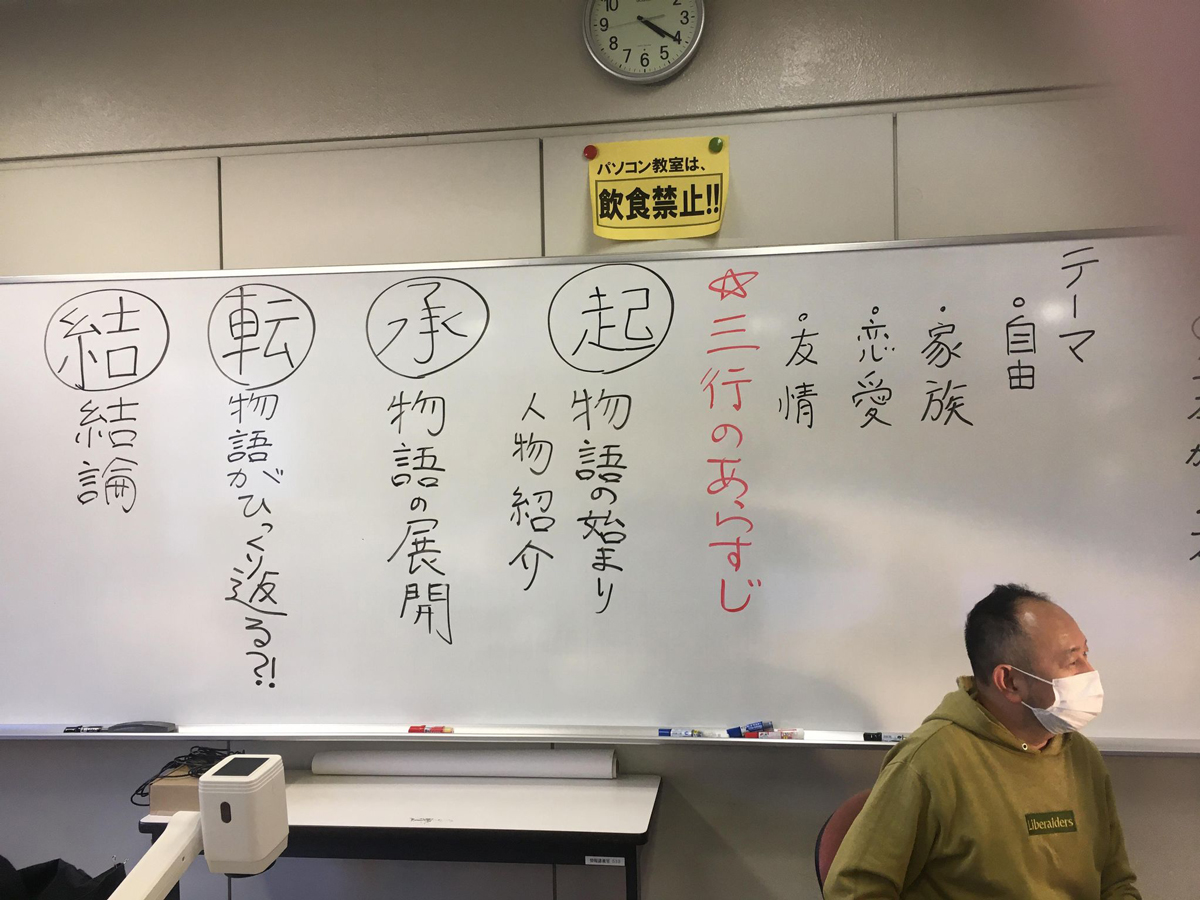 10
2
9
3
8
4
7
6
5
パソコン教室は、
飲食禁止!!
テーマ
・自由
・家族
・恋愛
・友情
☆三行のあらすじ
起
物語の始まり
人物紹介
承
物語の展開
転
物語がひっくり返る?!
結
結論
Liberaiders